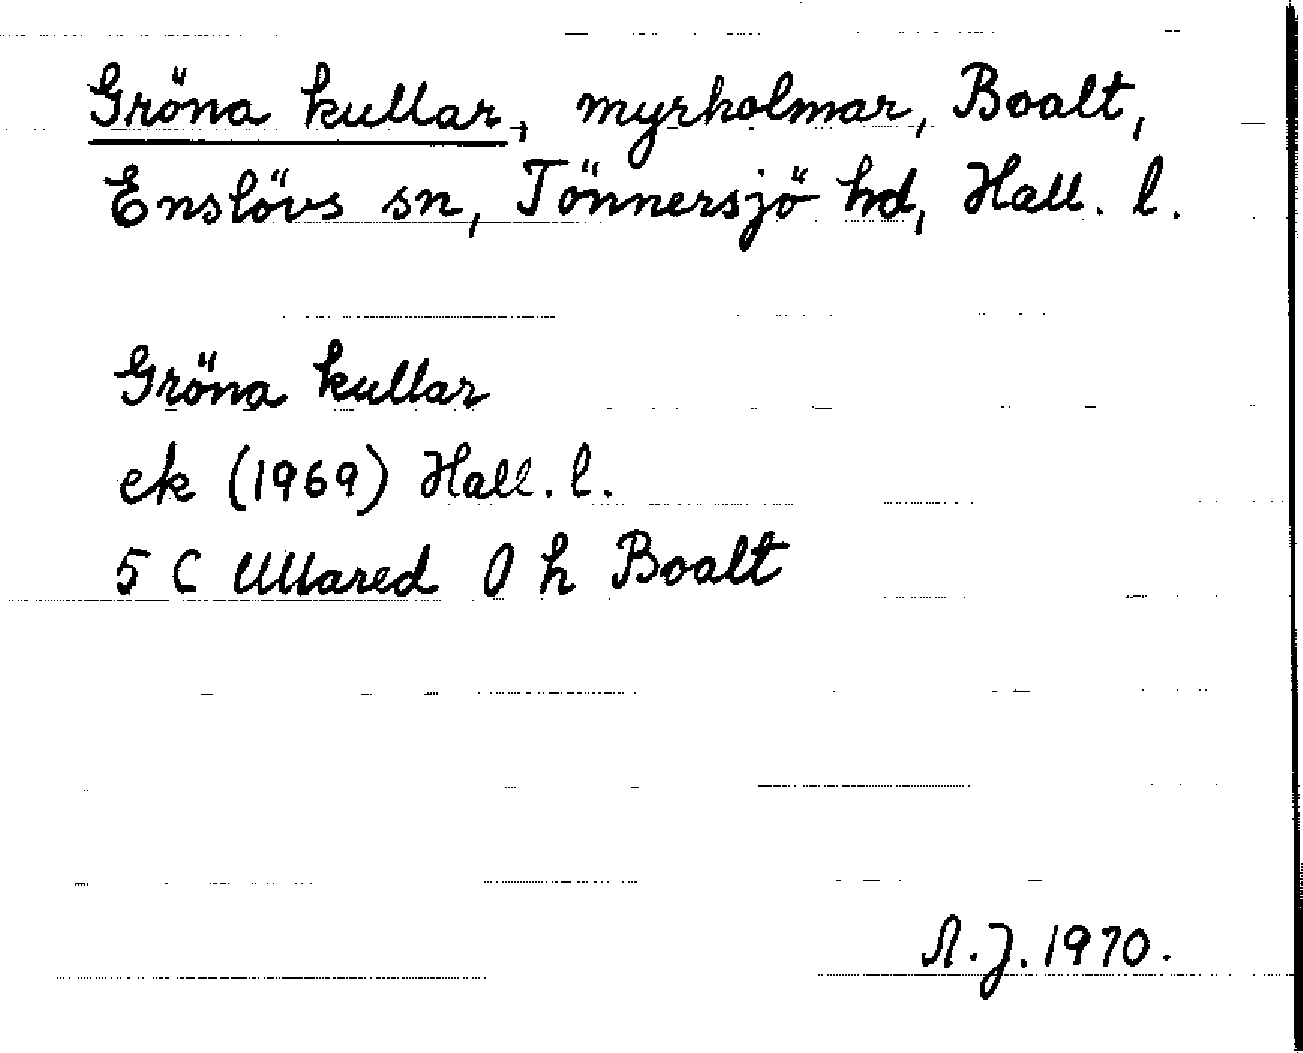 Gröna kullar, myrholmar, Boalt,
Enslövs sn, Tönnersjö hd, Hall. l.
Gröna kullar
ek (1969) Hall. l.
5 C Ullared 0 h Boalt
A.J. 1970.